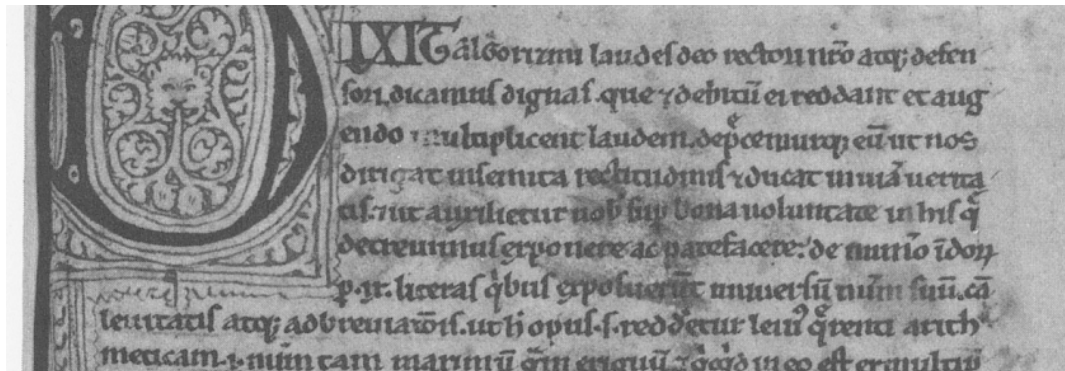 DIXIT algorizmi laudes deo rectori nr̄o atq; defen
sori dicamus dignas. que ⁊ debitū ei reddant et aug
endo multiplicent laudem. dep̄cemurq; eū ut nos
dirigat in semita rectitudinis ⁊ ducat in uiā uerita
tis. ⁊ ut auxilietur nob̄ sup̄ bona uoluntate in his q̄
decreuimus exponere ac patefacere: de numˀo īdoꝝ
p. ıx. literas q̇bus exposuerūt uniuersū num̄ suū. cā
leuitatis atq; adbreuiatōis. ut h̄ opus .s. redderetur leuiˀ q̄renti arith
meticam .i. num̄ tam maximū q̄m exiguū ⁊ q̇cq̇d in eo est ex multip̄